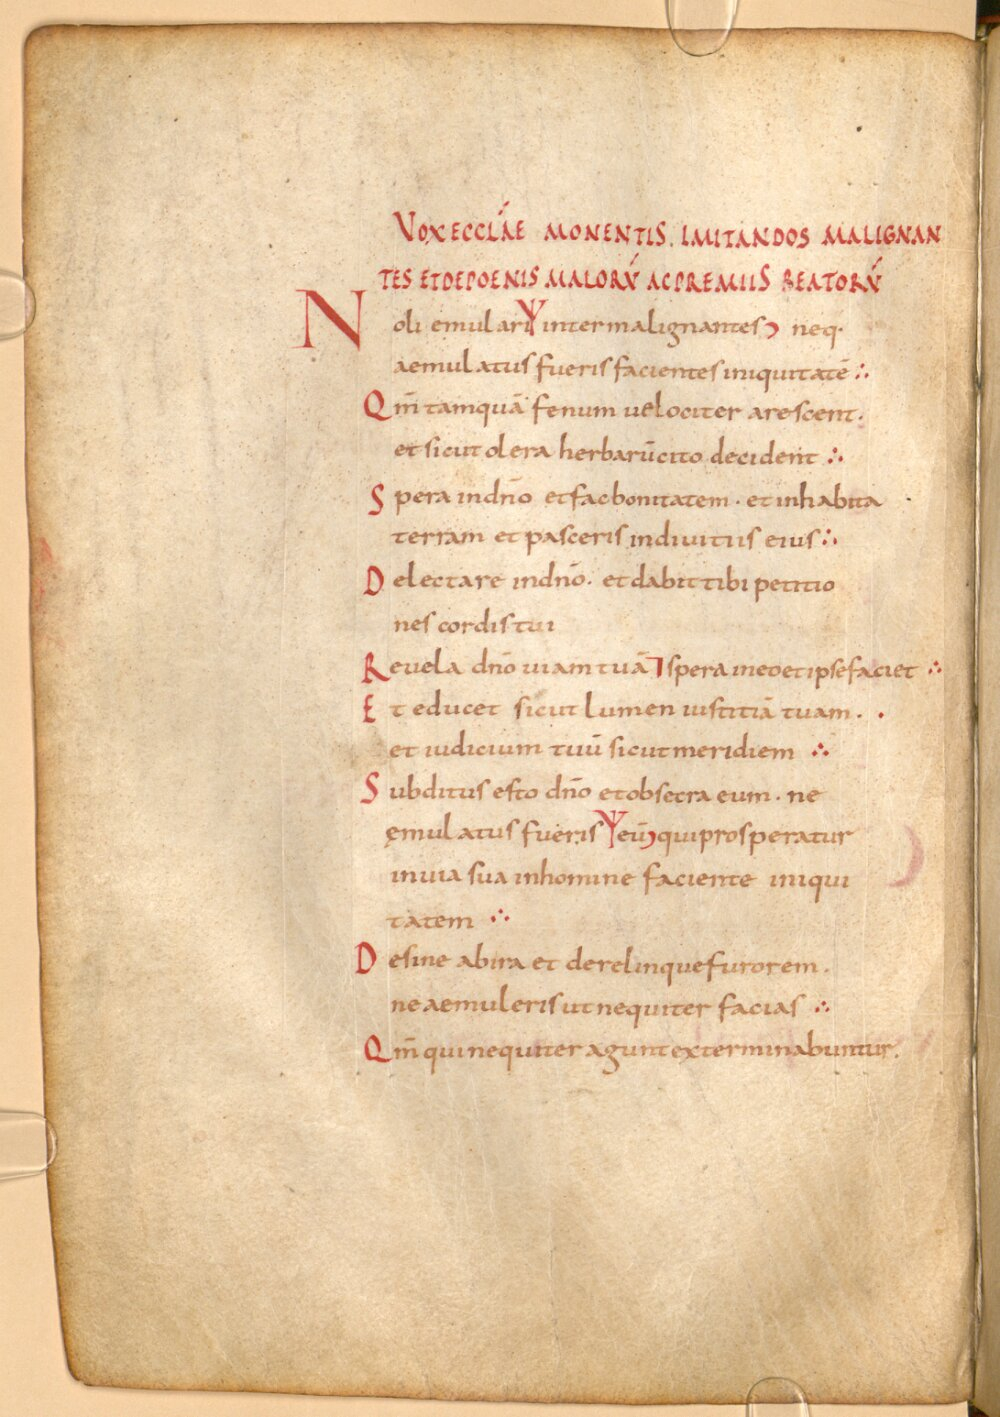 VOX ECCLAE MONENTIS. IMITANDOS MALIGNAN
TES ET DE POENIS MALORV́ AC PREMIIS BEATORV́
Noli emulari inter malignantes neq·
aemulatus fueris facientes iniquitatē ∴
Qm̄ tamquā fenum velociter arescent.
et sicut olera herbarū cito decident ∴
Spera in dn̄o et fac bonitatem · et inhabita
terram et pasceris in divitiis eius ∴
Delectare in dn̄o · et dabit tibi petitio
nes cordis tui
Revela dn̄o viam tuā ⁊ spera in eo et ipse faciet ∴
Et educet sicut lumen iustitiā tuam · ·
et iudicium tuū sicut meridiem ∴
Subditus esto dn̄o et obsecra eum · ne
ęmulatus fueris eū qui prosperatur
in via sua in homine faciente iniqui
tatem ∴
Desine ab ira et derelinque furorem .
ne aemuleris ut nequiter facias ∴
Qm̄ qui nequiter agunt exterminabuntur.